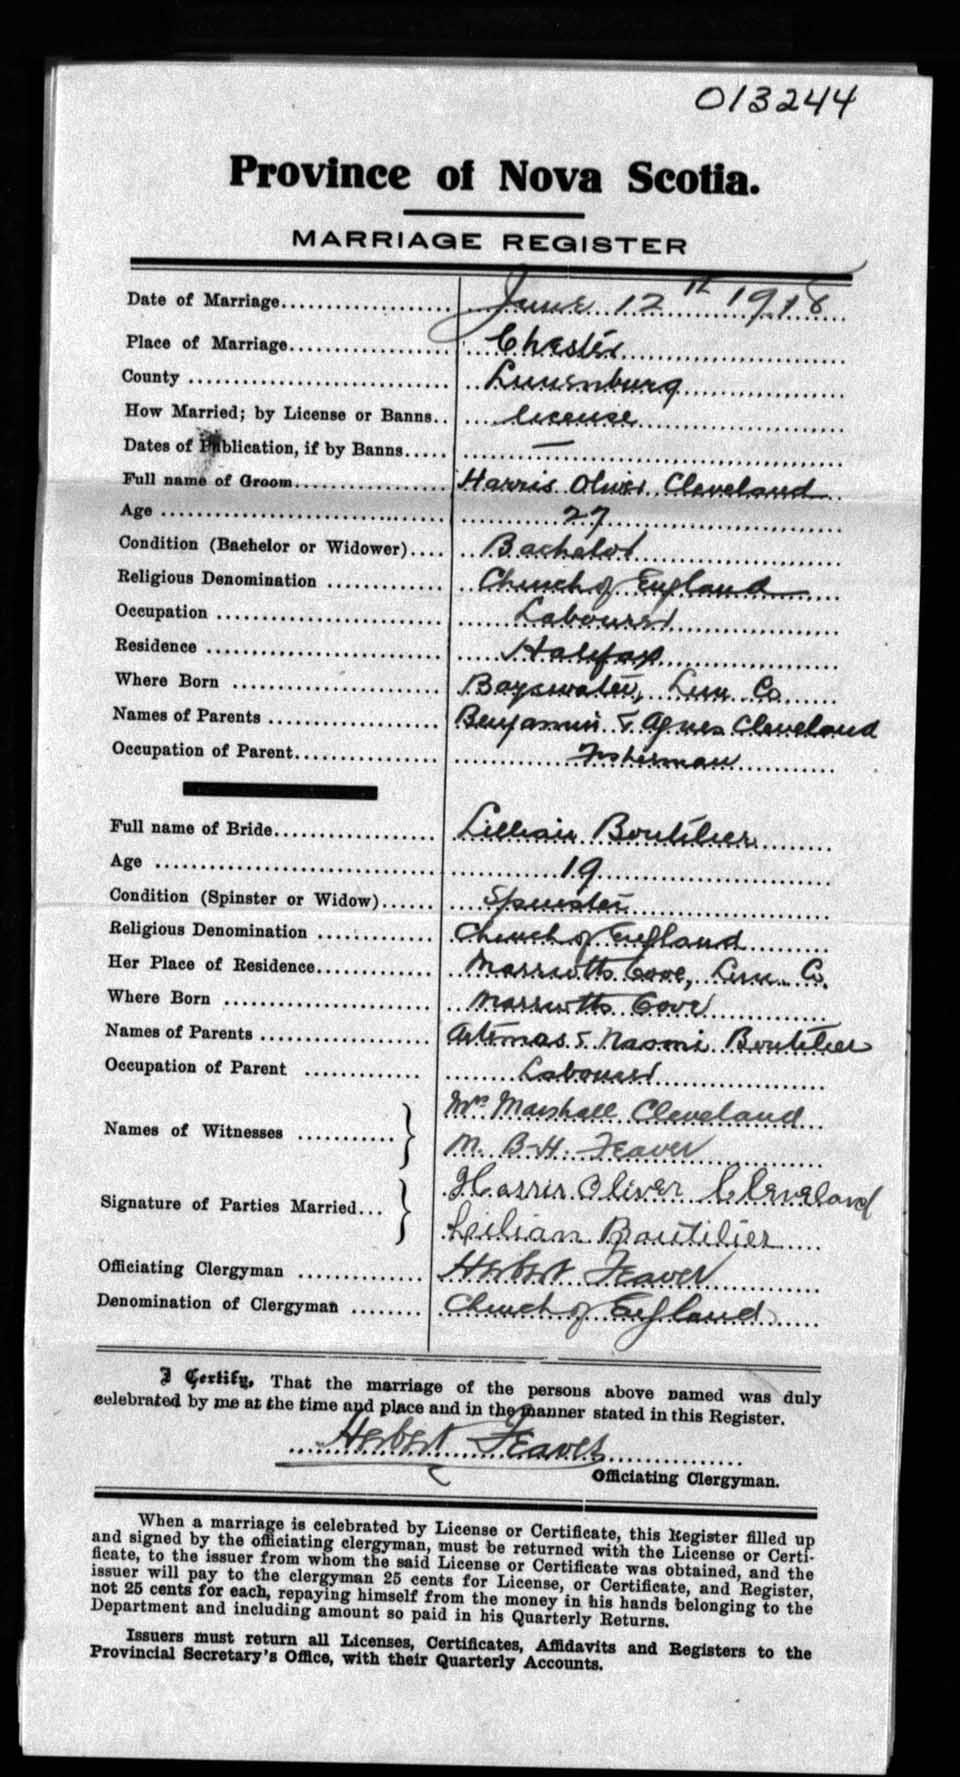 013244
Province of Nova Scotia.
MARRIAGE REGISTER
Date of Marriage June 12th 1918
Place of Marriage Chester
County Lunenburg
How Married; by License or Banns license
Dates of Publication, if by Banns —
Full name of Groom Harris Oliver Cleveland
Age 27
Condition (Bachelor or Widower) Bachelor
Religious Denomination Church of England
Occupation Labourer
Residence Halifax
Where Born Bayswater, Lun Co
Names of Parents Benjamin & Agnes Cleveland
Occupation of Parent Fisherman
Full name of Bride Lillian Boutilier
Age 19
Condition (Spinster or Widow) Spinster
Religious Denomination Church of England
Her Place of Residence Marriotts Cove, Lun. Co.
Where Born Marriotts Cove
Names of Parents Artemas & Naomi Boutilier
Occupation of Parent Labourer
Names of Witnesses Mrs Marshall Cleveland
M. B-H. Feaver
Signature of Parties Married Harris Oliver Cleveland
Lilian Boutilier
Officiating Clergyman Herbert Feaver
Denomination of Clergyman Church of England
I Certify, That the marriage of the persons above named was duly
celebrated by me at the time and place and in the manner stated in this Register.
Herbert Feaver
Officiating Clergyman.
When a marriage is celebrated by License or Certificate, this Register filled up
and signed by the officiating clergyman, must be returned with the License or Certi-
ficate, to the issuer from whom the said License or Certificate was obtained, and the
issuer will pay to the clergyman 25 cents for License, or Certificate, and Register,
not 25 cents for each, repaying himself from the money in his hands belonging to the
Department and including amount so paid in his Quarterly Returns.
Issuers must return all Licenses, Certificates, Affidavits and Registers to the
Provincial Secretary's Office, with their Quarterly Accounts.